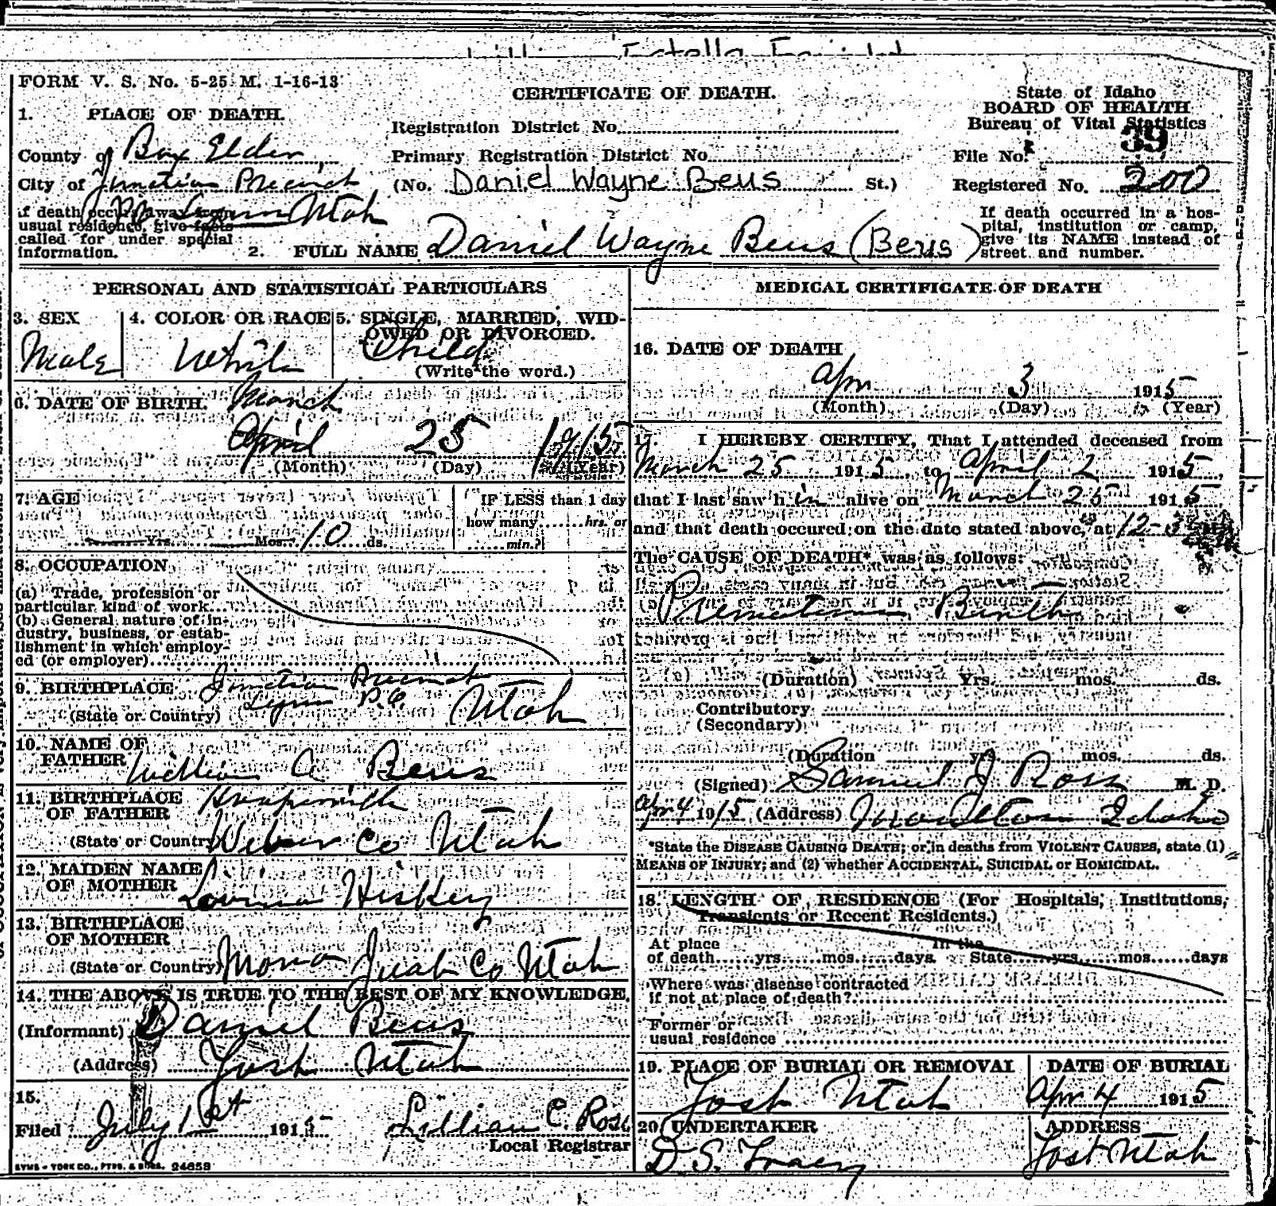 FORM V. S. No. 5-25 M. 1-16-13
CERTIFICATE OF DEATH.
State of Idaho
BOARD OF HEALTH
Bureau of Vital Statistics
File No. 39
Registered No. 200
1. PLACE OF DEATH.
County of Box Elder
City of Junction Precinct
P.O. Lynn Utah
if death occurs away from
usual residence, give facts
called for under special
information.
Registration District No.
Primary Registration District No.
(No. Daniel Wayne Beus St.)
If death occurred in a hos-
pital, institution or camp,
give its NAME instead of
street and number.
2. FULL NAME Daniel Wayne Beus (Beus)
PERSONAL AND STATISTICAL PARTICULARS
3. SEX
Male
4. COLOR OR RACE
White
5. SINGLE, MARRIED, WID-
OWED OR DIVORCED.
Child
(Write the word.)
6. DATE OF BIRTH. March
April 25 1915
(Month) (Day) (Year)
7. AGE
Yrs. Mos. 10 ds.
IF LESS than 1 day
how many hrs. or
min.?
8. OCCUPATION
(a) Trade, profession or
particular kind of work
(b) General nature of in-
dustry, business, or estab-
lishment in which employ-
ed (or employer)
9. BIRTHPLACE Junction Precinct
Lynn P.O. Utah
(State or Country)
10. NAME OF
FATHER William A Beus
11. BIRTHPLACE
OF FATHER
(State or Country) Weber Co Utah
12. MAIDEN NAME
OF MOTHER Hiskey
13. BIRTHPLACE
OF MOTHER
(State or Country) Mona Juab Co Utah
14. THE ABOVE IS TRUE TO THE BEST OF MY KNOWLEDGE,
(Informant) Daniel Beus
(Address) Yost Utah
15.
Filed July 1st 1915 Lillian C. Ross
Local Registrar
SYMS-YORK CO., PTRS. & BDRS. 24653
MEDICAL CERTIFICATE OF DEATH
16. DATE OF DEATH
Apr 3 1915
(Month) (Day) (Year)
17. I HEREBY CERTIFY, That I attended deceased from
March 25 1915, to April 2 1915,
that I last saw him alive on March 25 1915
and that death occured on the date stated above, at 12-3
The CAUSE OF DEATH* was as follows:
Premature Birth
(Duration) Yrs. mos. ds.
Contributory
(Secondary)
(Duration yrs. mos. ds.
(Signed) Samuel J Ross M. D.
Apr 4 1915 (Address) Moulton Idaho
*State the DISEASE CAUSING DEATH; or, in deaths from VIOLENT CAUSES, state (1)
MEANS OF INJURY; and (2) whether ACCIDENTAL, SUICIDAL or HOMICIDAL.
18. LENGTH OF RESIDENCE (For Hospitals, Institutions,
Transients or Recent Residents.)
At place In the
of death yrs. mos. days State yrs. mos. days
Where was disease contracted
if not at place of death?
Former or
usual residence
19. PLACE OF BURIAL OR REMOVAL
Yost Utah
DATE OF BURIAL
Apr 4 1915
20. UNDERTAKER
D. S. Tracy
ADDRESS
Yost Utah